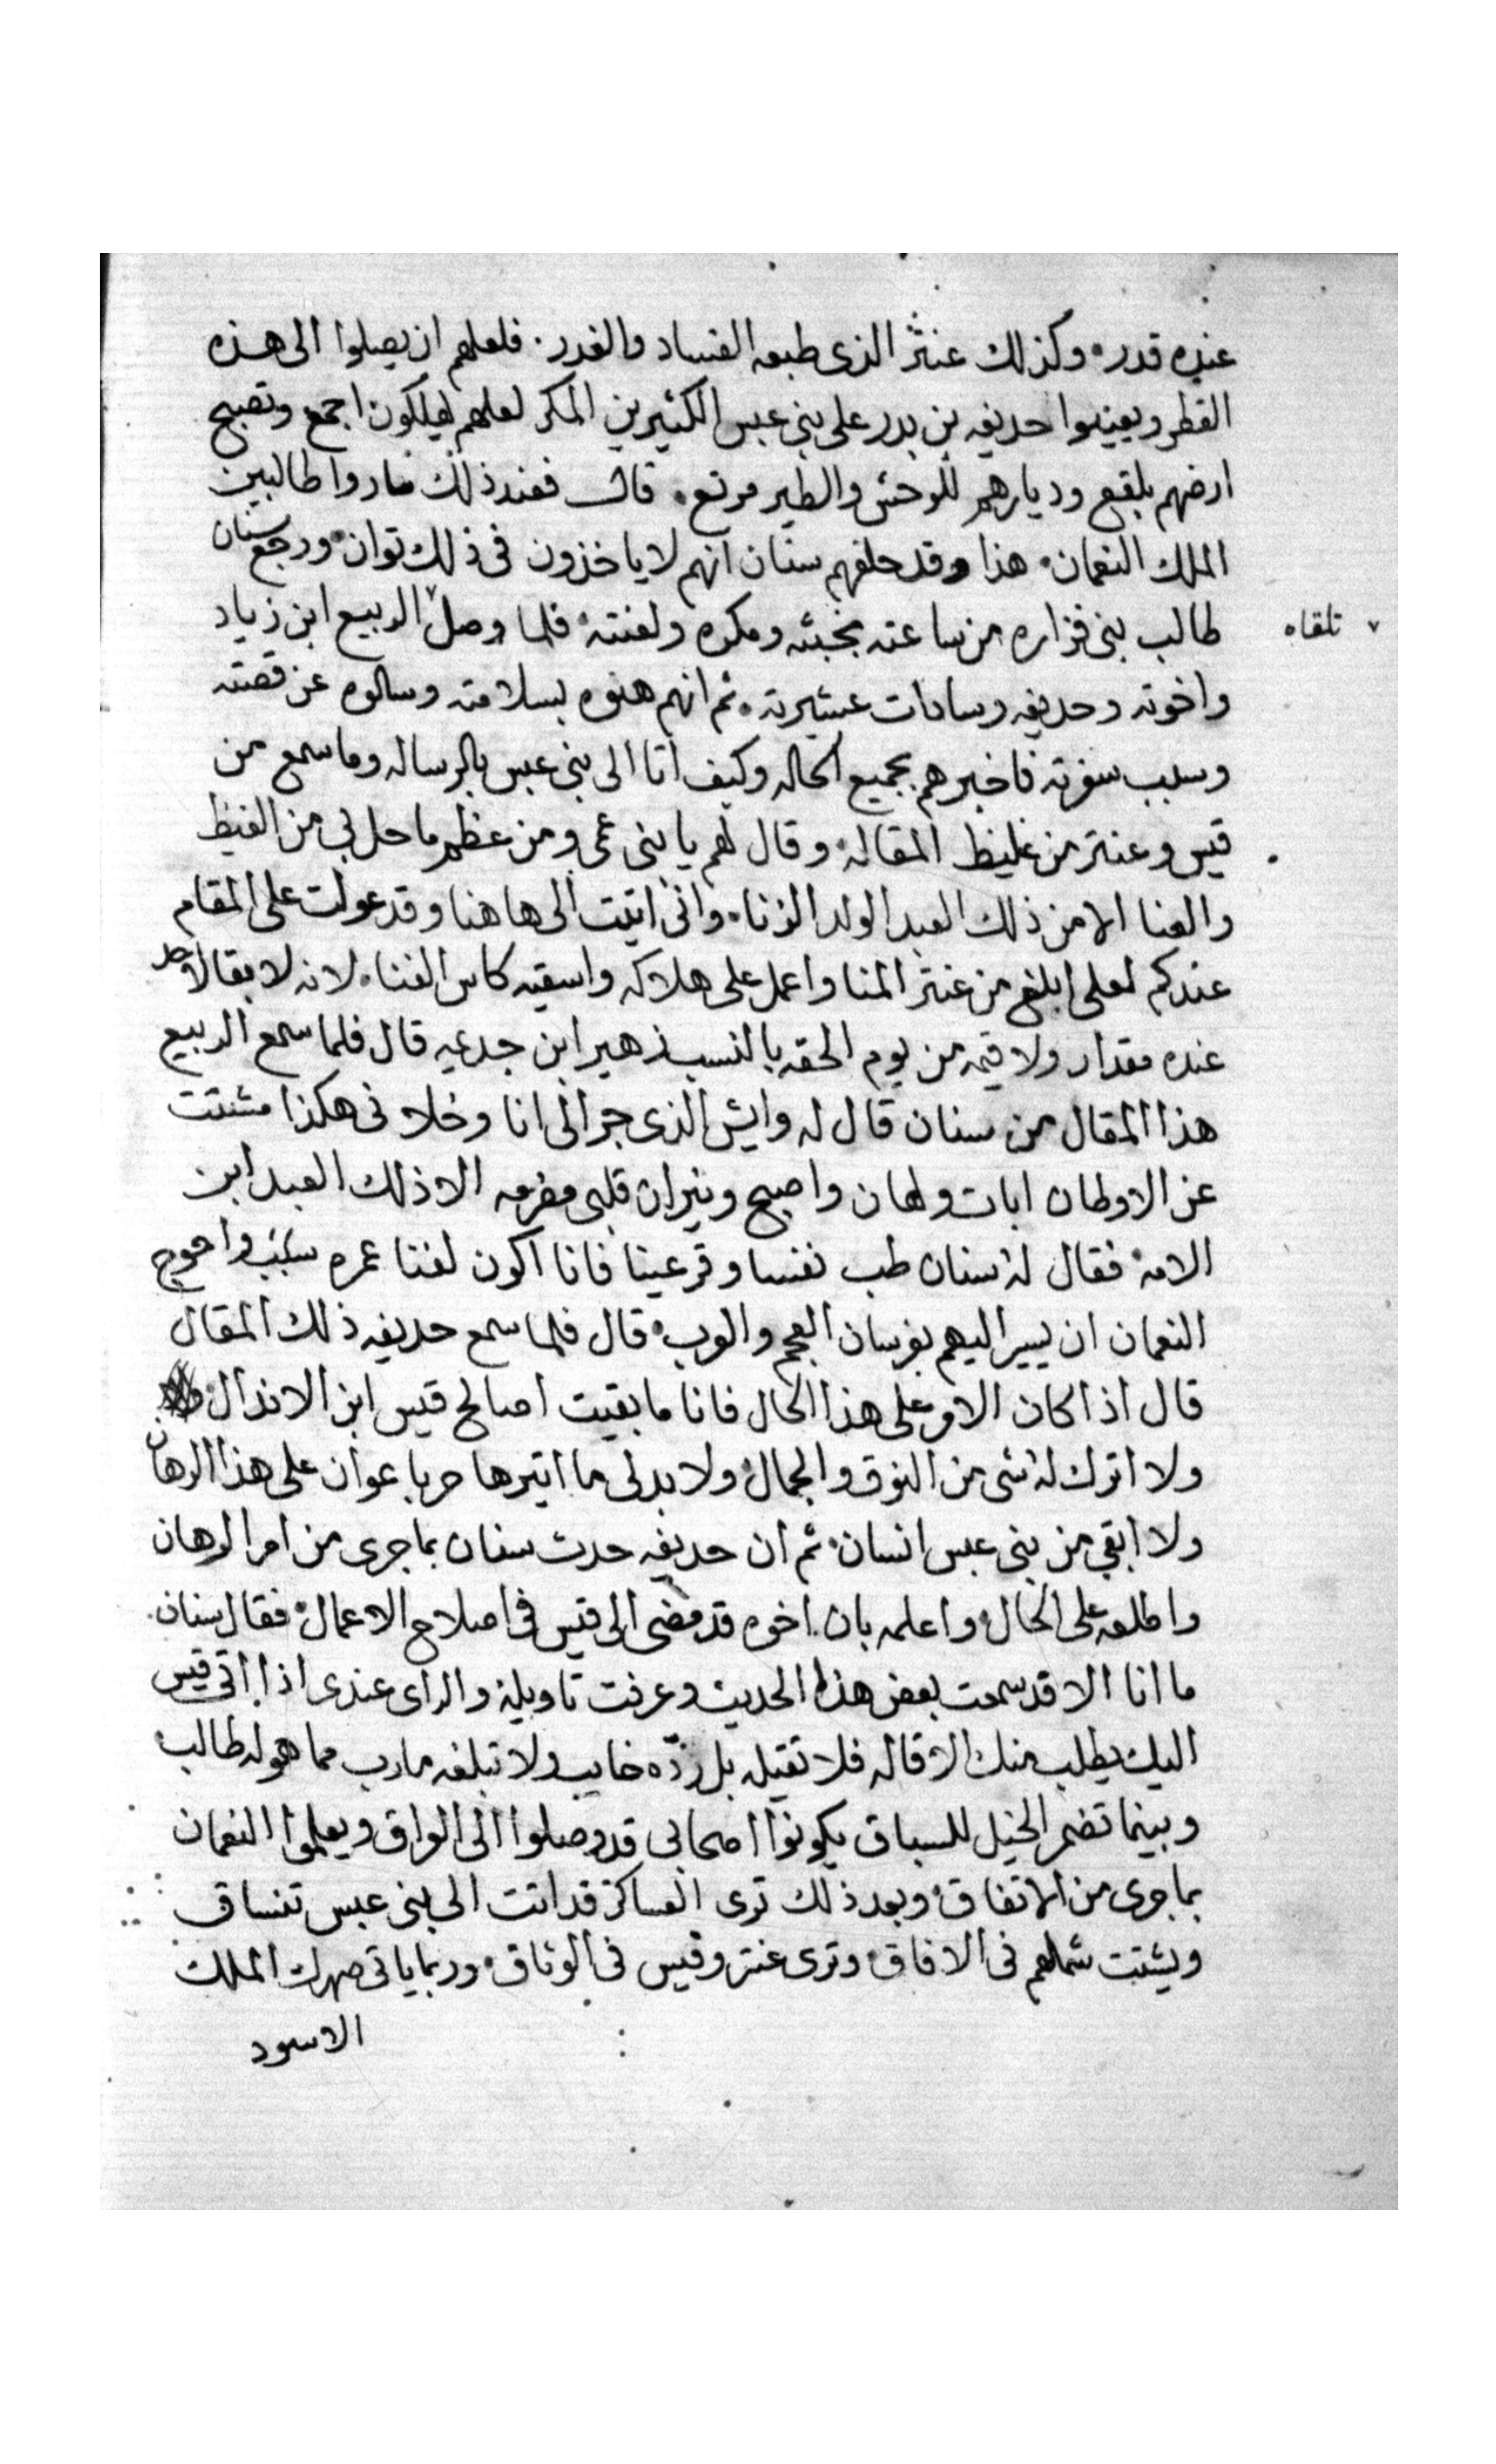 عنده قدر وكذلك عنتر الذى طبعه الفساد والغدر فلعلهم ان يصلوا الى هذه
القطر ويعينوا حديفه بن بدر على بنى عبس الكثيرين المكر لعلهم يهلكون اجمع وتصبح
ارضهم بلقع وديارهم للوحش والطير مرتع قال فعند ذلك صاروا طالبين
الملك النعمان هذا وقد حلفهم سنان انهم لا ياخذون فى ذلك توان ورجع سنان
طالب بنى فزاره من ساعته بخبثه ومكره ولعنته فلما وصل الربيع ابن زياد
تلقاه
واخوته وحديفه وسادات عشيرته ثم انهم هنوه بسلامته وسالوه عن قصته
وسبب سفرته فاخبرهم بجميع الحاله وكيف اتا الى بنى عبس بالرساله وما سمع من
قيس وعنتر من غليظ المقاله وقال لهم يا بنى عمى ومن عظم ما حل بى من الغيظ
والعنا الا من ذلك العبد الولد الزنا وانى اتيت الى هاهنا وقد عولت على المقام
عندكم لعلى ابلغ من عنتر المنا واعمل على هلاكه واسقيه كاس الفنا لانه لا بقا لاحد
عنده مقدار ولا قيمه من يوم الحقه بالنسب زهير ابن جدعيه قال فلما سمع الربيع
هذا المقال من سنان قال له وايش الذى جرا لى انا وخلانى هكذا مشتت
عن الاوطان ابات ولهان واصبح ونيران قلبى مضرمه الا ذلك العبد ابن
الامه فقال له سنان طب نفسا وقر عينا فانا اكون لفنا عمره سبب واحوج
النعمان ان يسير اليهم بفرسان العجم والعرب قال فلما سمع حديفه ذلك المقال
قال اذا كان الامر على هذا الحال فانا ما بقيت اصالح قيس ابن الاندال
ولا اترك له شى من النوق والجمال ولا بد لى ما اتيرها حربا عوان على هذا الرهان
ولا ابقى من بنى عبس انسان ثم ان حديفه حدث سنان بما جرى من امر الرهان
واطلعه على الحال واعلمه بان اخوه قد مضى الى قيس فى اصلاح الاعمال فقال سنان
ما انا الا قد سمعت بعض هذا الحديث وعرفت تاويله والراى عندى اذا اتى قيس
اليك يطلب منك الاقاله فلا تقيله بل ردّه خايب ولا تبلغه مارب مما هو له طالب
وبينما تضمر الخيل للسباق يكونوا اصحابى قد وصلوا الى العراق ويعلموا النعمان
بما جرى من الاتفاق وبعد ذلك ترى العساكر قد اتت الى بنى عبس تنساق
ويشتت شملهم فى الافاق وترى عنتر وقيس فى الوثاق وربما ياتى صهرك الملك
الاسود